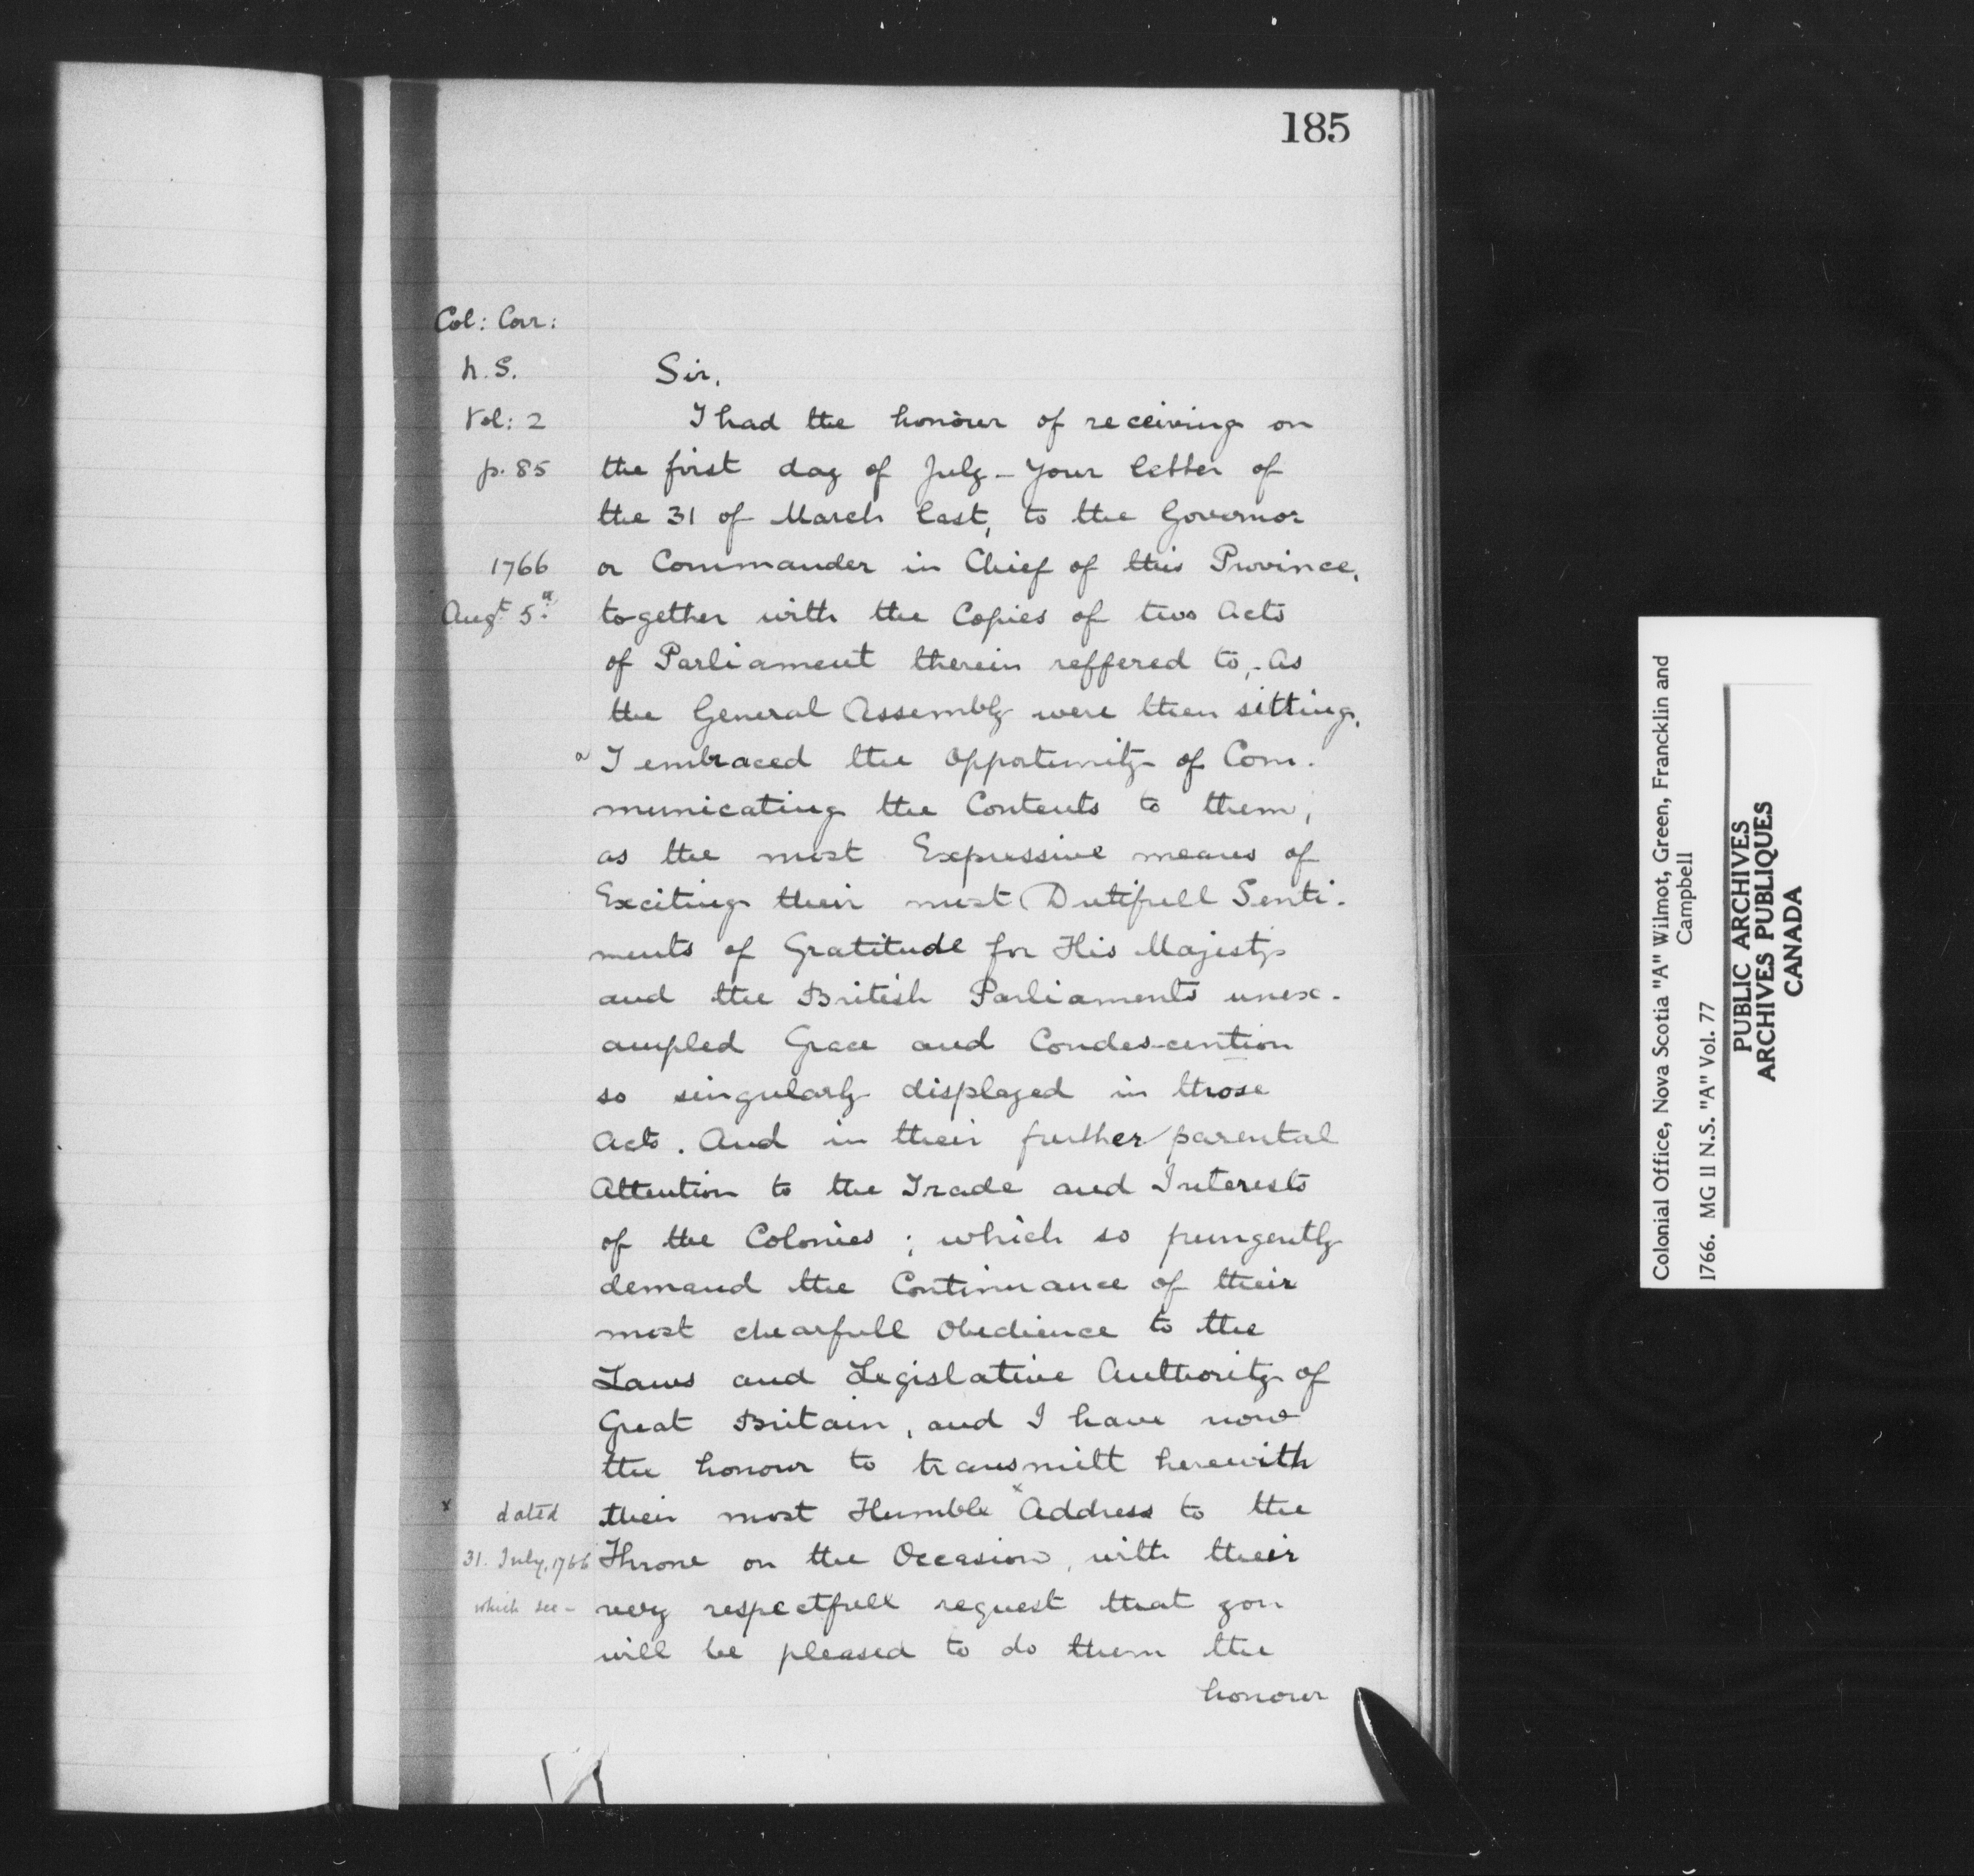 185
Col: Corr:
N.S.
Vol: 2
p. 85
1766
Augt 5.
Sir,
I had the honour of receiving on
the first day of July - Your letter of
the 31 of March last, to the Governor
or Commander in Chief of this Province,
together with the Copies of two Acts
of Parliament therein reffered to, - as
the General Assembly were then sitting,
I embraced the opportunity of Com-
municating the Contents to them,
as the most Expressive means of
Exciting their most Dutifull Senti-
ments of Gratitude for His Majestys
and the British Parliaments unex-
ampled Grace and Condescention
so singularly displayed in those
Acts. And in their further parental
Attention to the Trade and Interests
of the Colonies; which so pungently
demand the Continuance of their
most chearfull Obedience to the
Laws and Legislative Authority of
Great Britain, and I have now
the honour to transmitt herewith
their most Humble x Address to the
Throne on the Occasion, with their
very respectfull request that you
will be pleased to do them the
honour
x dated
31. July, 1766
which see -
Colonial Office, Nova Scotia "A" Wilmot, Green, Francklin and
Campbell
1766. MG 11 N.S. "A" Vol. 77
PUBLIC ARCHIVES
ARCHIVES PUBLIQUES
CANADA